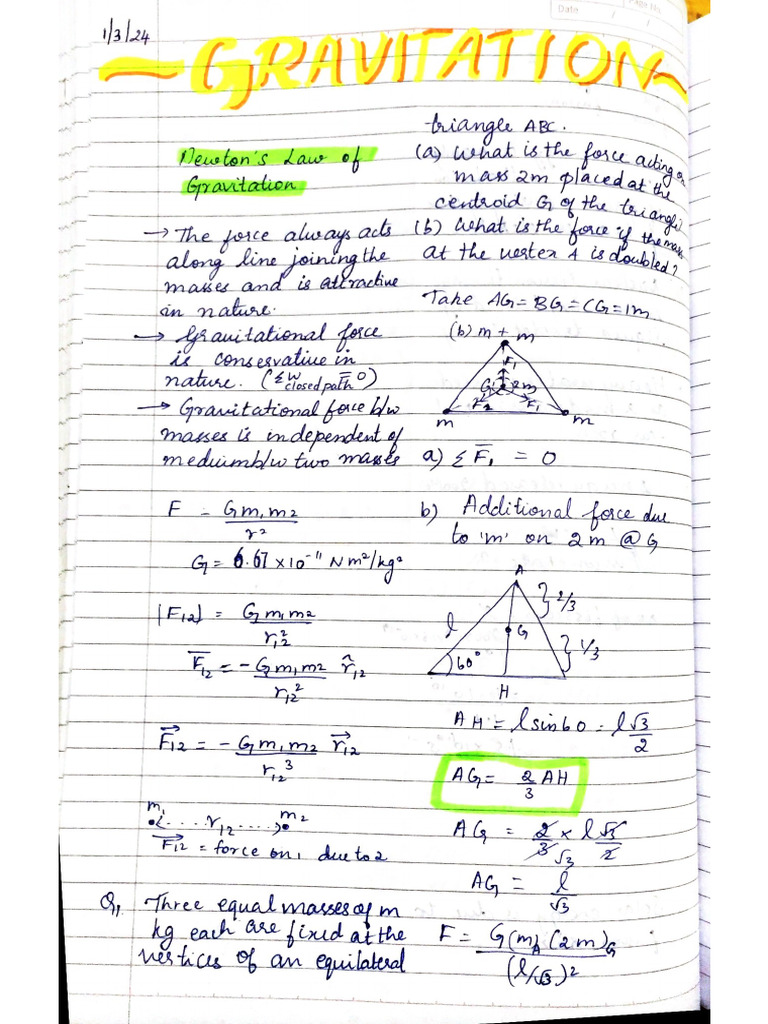 Page No.
Date / /
1/3/24
GRAVITATION
Newton's Law of
Gravitation
→ The force always acts
along line joining the
masses and is attractive
in nature.
→ Gravitational force
is conservative in
nature. (ΣW closed path = 0)
→ Gravitational force b/w
masses is independent of
medium b/w two masses
F = Gm₁m₂ / r²
G = 6.67 × 10⁻¹¹ Nm²/kg²
|F₁₂| = Gm₁m₂ / r₁₂²
F̅₁₂ = -Gm₁m₂ / r₁₂² r̂₁₂
F⃗₁₂ = -Gm₁m₂ / r₁₂³ r⃗₁₂
m₁ r₁₂ m₂
F⃗₁₂ = force on 1 due to 2
Q1. Three equal masses of m
kg each are fixed at the
vertices of an equilateral
triangle ABC.
(a) What is the force acting on
mass 2m placed at the
centroid G of the triangle
(b) What is the force if the mass
at the vertex A is doubled?
Take AG = BG = CG = 1m
(b) m + m
F₁
G 2m
F₂ F₁
m m
a) ΣF̅₁ = 0
b) Additional force due
to 'm' on 2m @ G
A
2/3
l G
1/3
60°
H
AH = l sin 60 = l√3 / 2
AG = 2/3 AH
AG = 2/3 √3 × l√3 / 2
AG = l / √3
F = G(m)A (2m)G / (l/√3)²